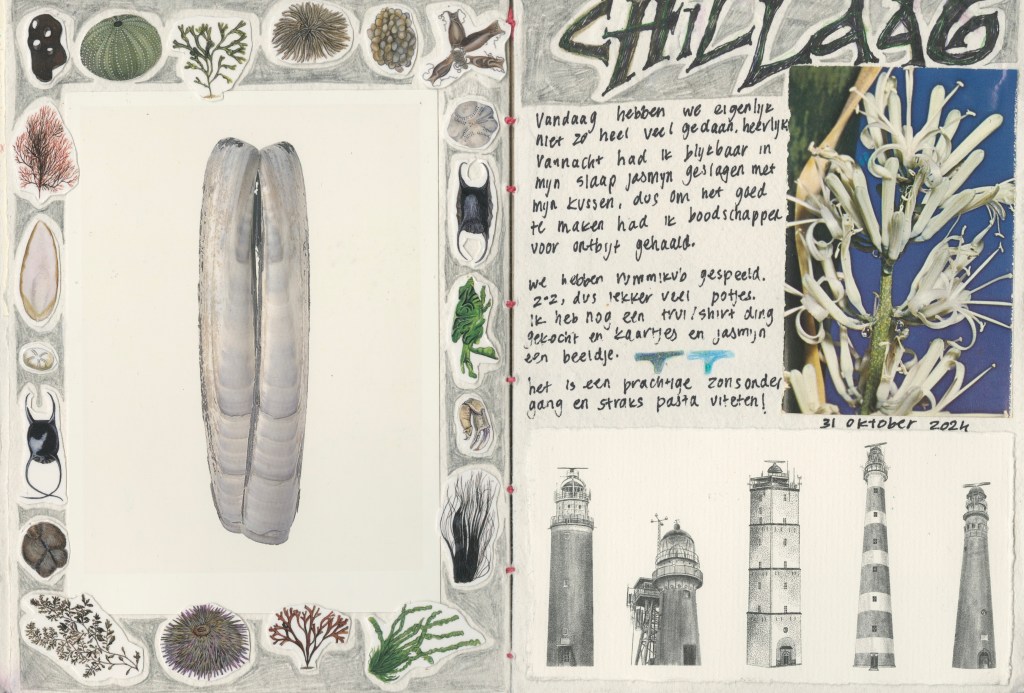 CHILLDAG
Vandaag hebben we eigenlijk
niet zo heel veel gedaan. heerlijk
vannacht had ik blijkbaar in
mijn slaap Jasmijn geslagen met
mijn kussen, dus om het goed
te maken had ik boodschappen
voor ontbijt gehaald.
we hebben rummikub gespeeld.
2-2, dus lekker veel potjes.
ik heb nog een trui/shirt ding
gekocht en kaartjes en Jasmijn
een beeldje.
het is een prachtige zonsonder
gang en straks pasta uiteten!
31 oktober 2024